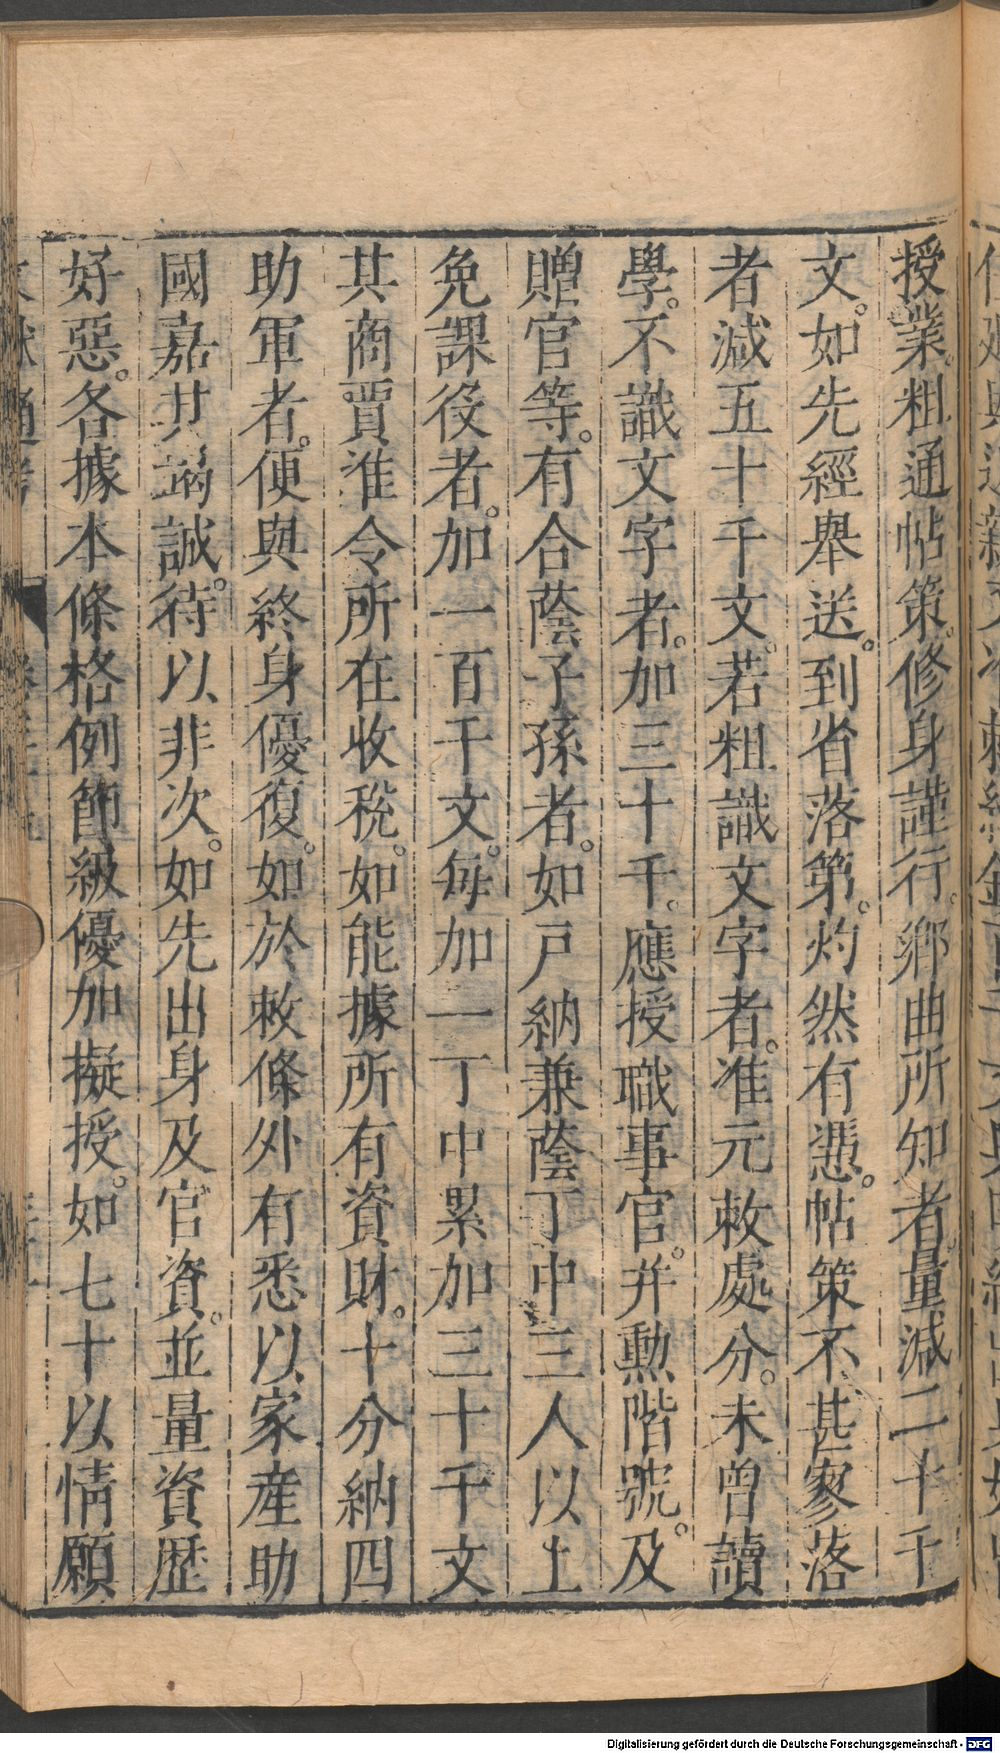 授業。粗通帖策。修身謹行。鄉曲所知者。量減二十千
文。如先經舉送。到省落第。灼然有憑。帖策不甚寥落
者減五十千文。若粗識文字者。准元敕處分。未曾讀
學。不識文字者。加三十千。應授職事官。并勲階號。及
贈官等。有合蔭子孫者。如戸納兼蔭丁中三人以上
免課役者。加一百千文。每加一丁中累加三十千文
其商賈准令所在收稅。如能據所有資財。十分納四
助軍者。便與終身優復。如於敕條外有悉以家産助
國嘉其竭誠。待以非次。如先出身及官資。並量資歴
好惡。各據本條格例節級優加擬授。如七十以情願
Digitalisierung gefördert durch die Deutsche Forschungsgemeinschaft - DFG